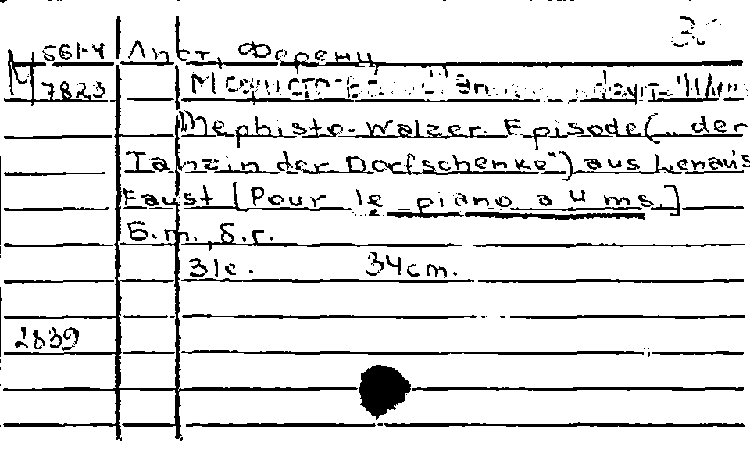 М 561-4 Лист, Ференц
7823
Mephisto-Walzer. Episode („der
Tanz in der Dorfschenke") aus Lenau's
Faust [Pour le piano a 4 ms.]
Б.м., б.г.
31с. 34cm.
2839